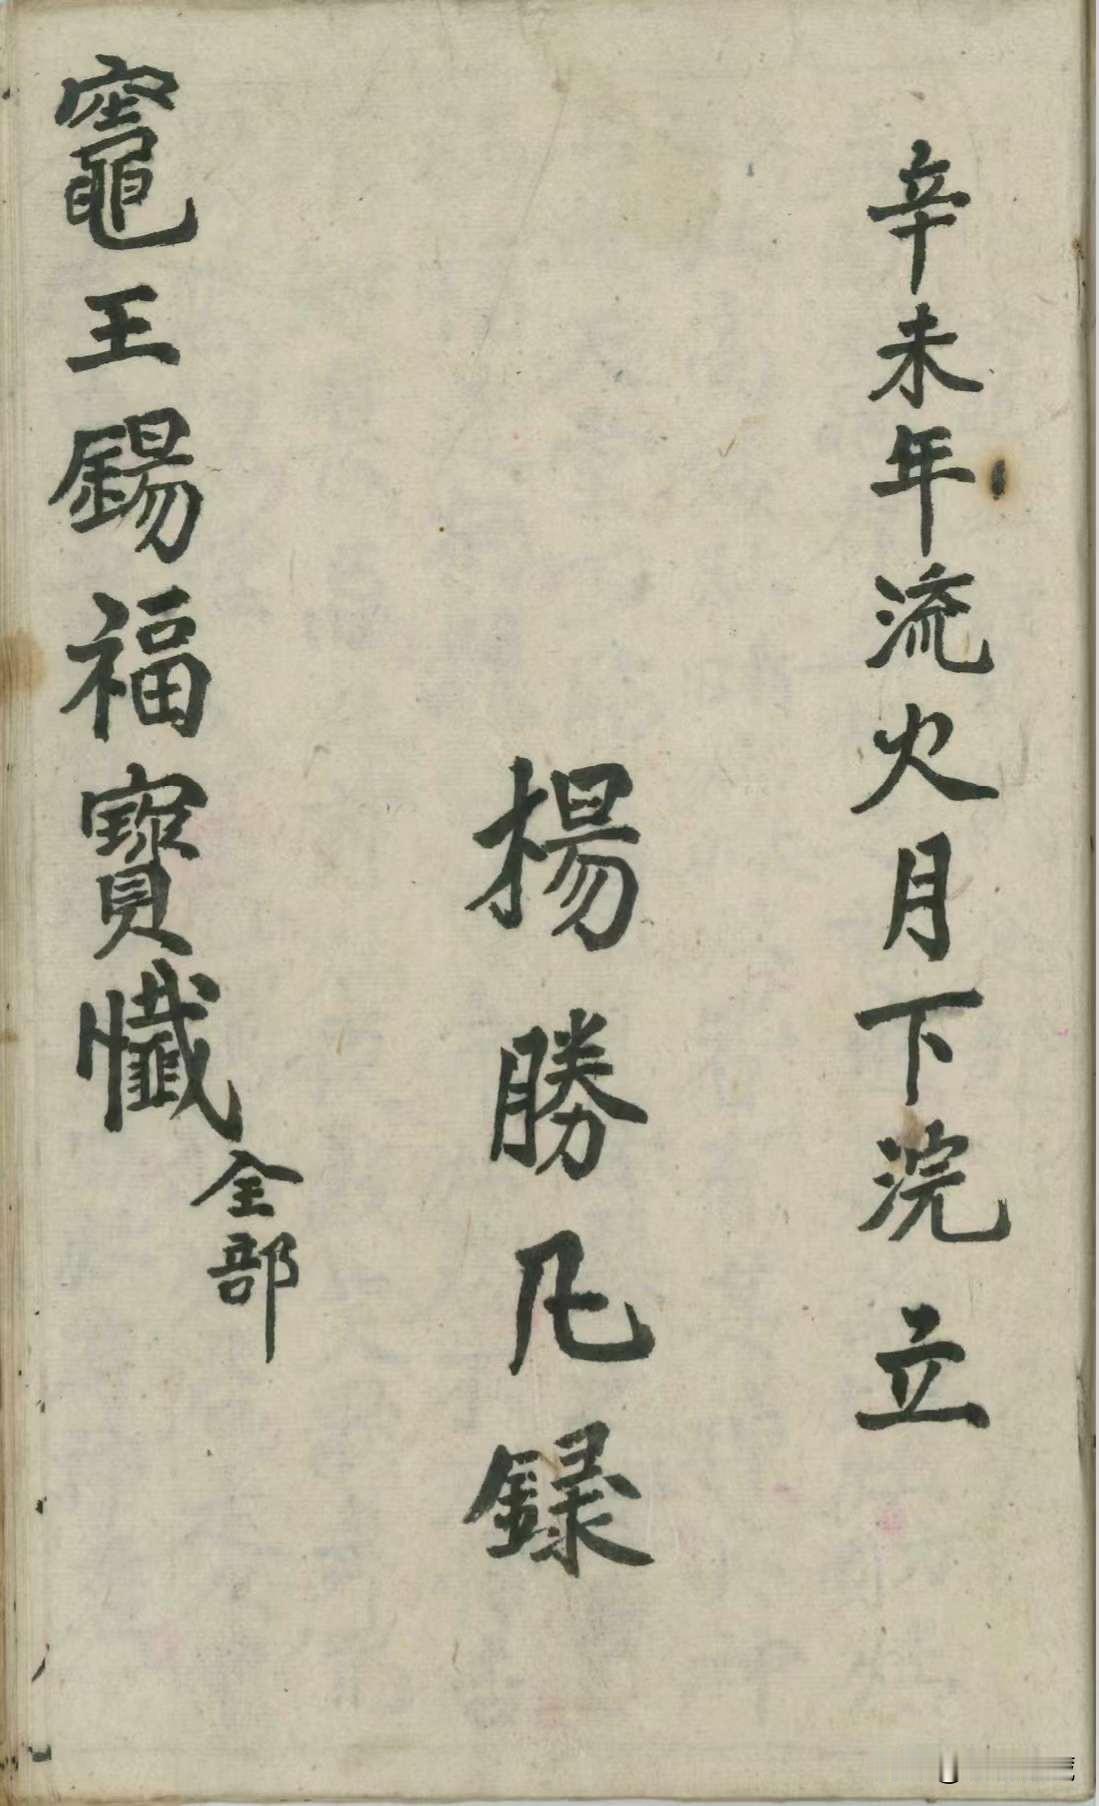 辛未年流火月下浣立
楊勝凡錄
竈王錫福寶懺全部